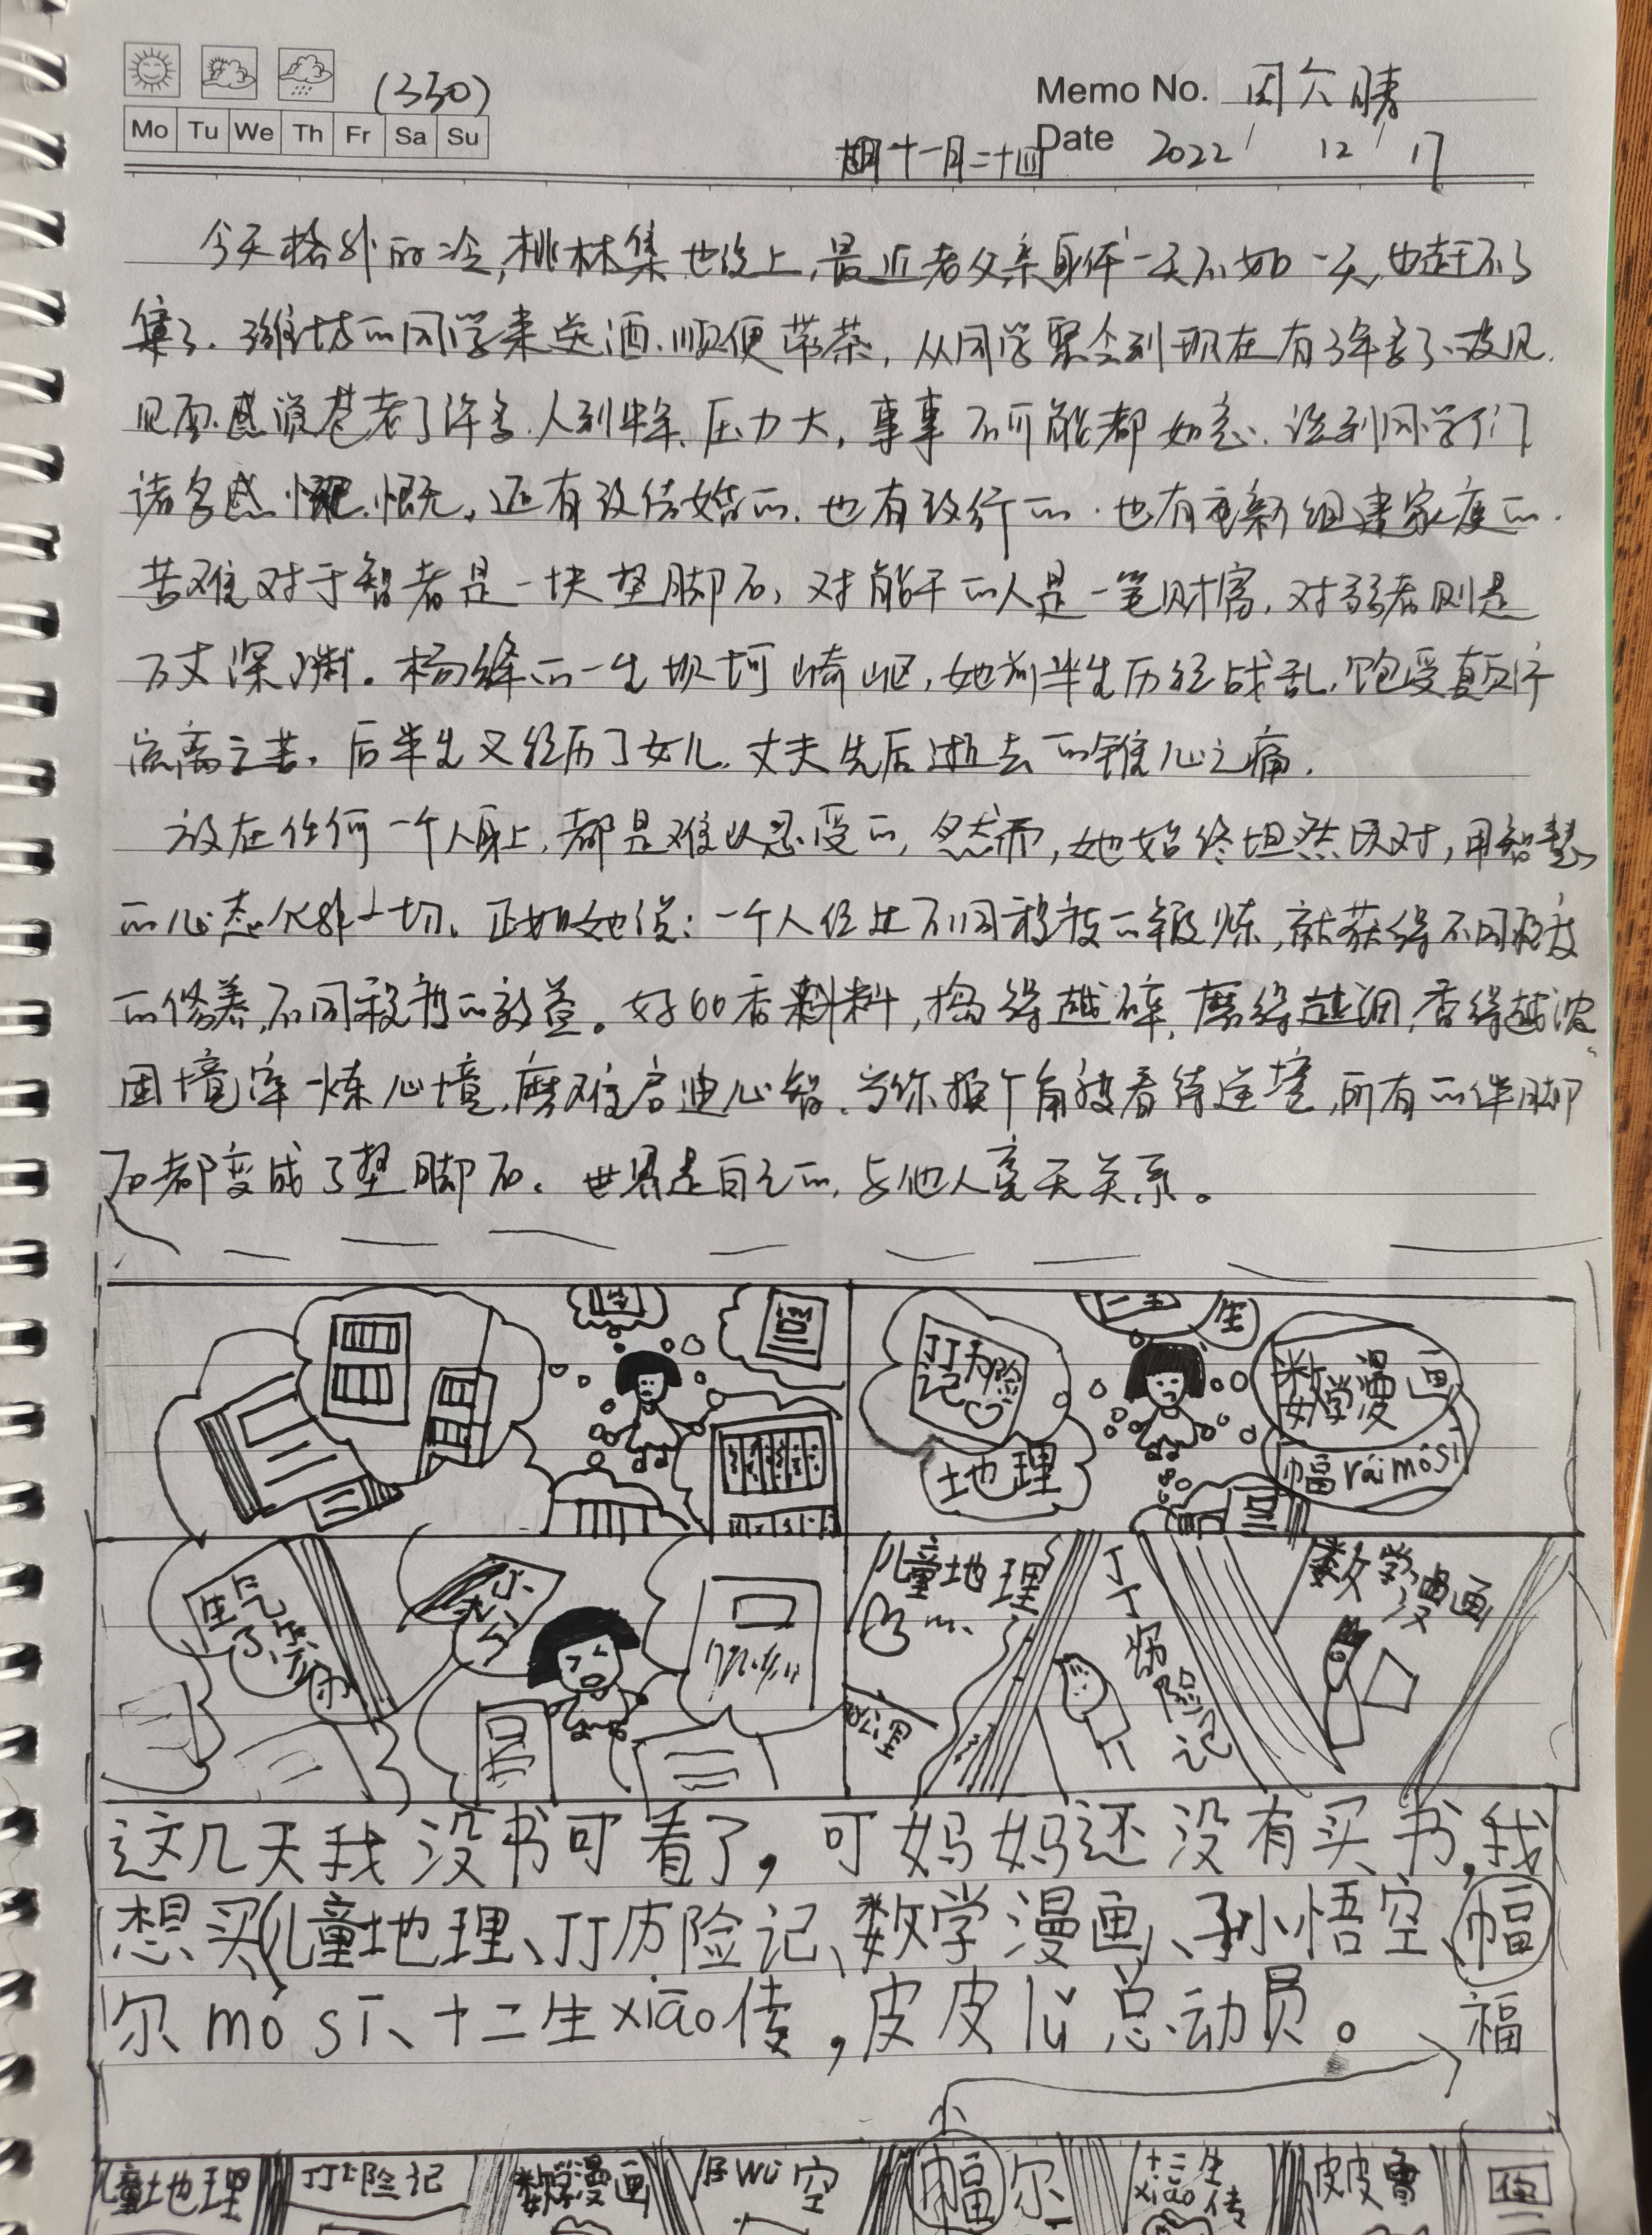 (330)
Memo No.
Mo Tu We Th Fr Sa Su
Date 2022 / 12 / 17
十一月二十四
今天格外的冷,桃林集也没上,最近老父亲身体一天不如一天,也赶不了
集了.潍坊的同学来送酒.顺便带茶,从同学聚会到现在有3年多了.没见.
见面.感觉苍老了许多.人到中年、压力大,事事不可能都如意.谈到同学们
诸多感慨.还有没结婚的.也有改行的.也有重新组建家庭的.
苦难对于智者是一块垫脚石,对能干的人是一笔财富,对弱者则是
万丈深渊。杨绛的一生坝坷崎岖,她前半生历经战乱,饱受颠沛
流离之苦.后半生又经历了女儿.丈夫先后逝去的锥心之痛.
放在任何一个人身上,都是难以忍受的,然而,她始终坦然以对,用智慧
的心态化解一切。正如她说:一个人经过不同程度的锻炼,就获得不同程度
的修养,不同程度的效益。好的香料,捣得越碎,磨得越细,香得越浓
困境淬炼心境,磨难启迪心智.当你换个角度看待逆境,所有的绊脚
石都变成了垫脚石。世界是自己的,与他人毫无关系。
丁丁历险记
地理
生
数学漫画
福rái mó sī
儿童地理
丁丁历险记
数学漫画
这几天我没书可看了,可妈妈还没有买书,我
想买儿童地理、丁丁历险记、数学漫画、孙悟空、福
尔mó sī、十二生xiāo传,皮皮lǔ总动员。
福
儿童地理
丁丁历险记
数学漫画
wù空
福尔
十二生xiāo传
皮皮鲁